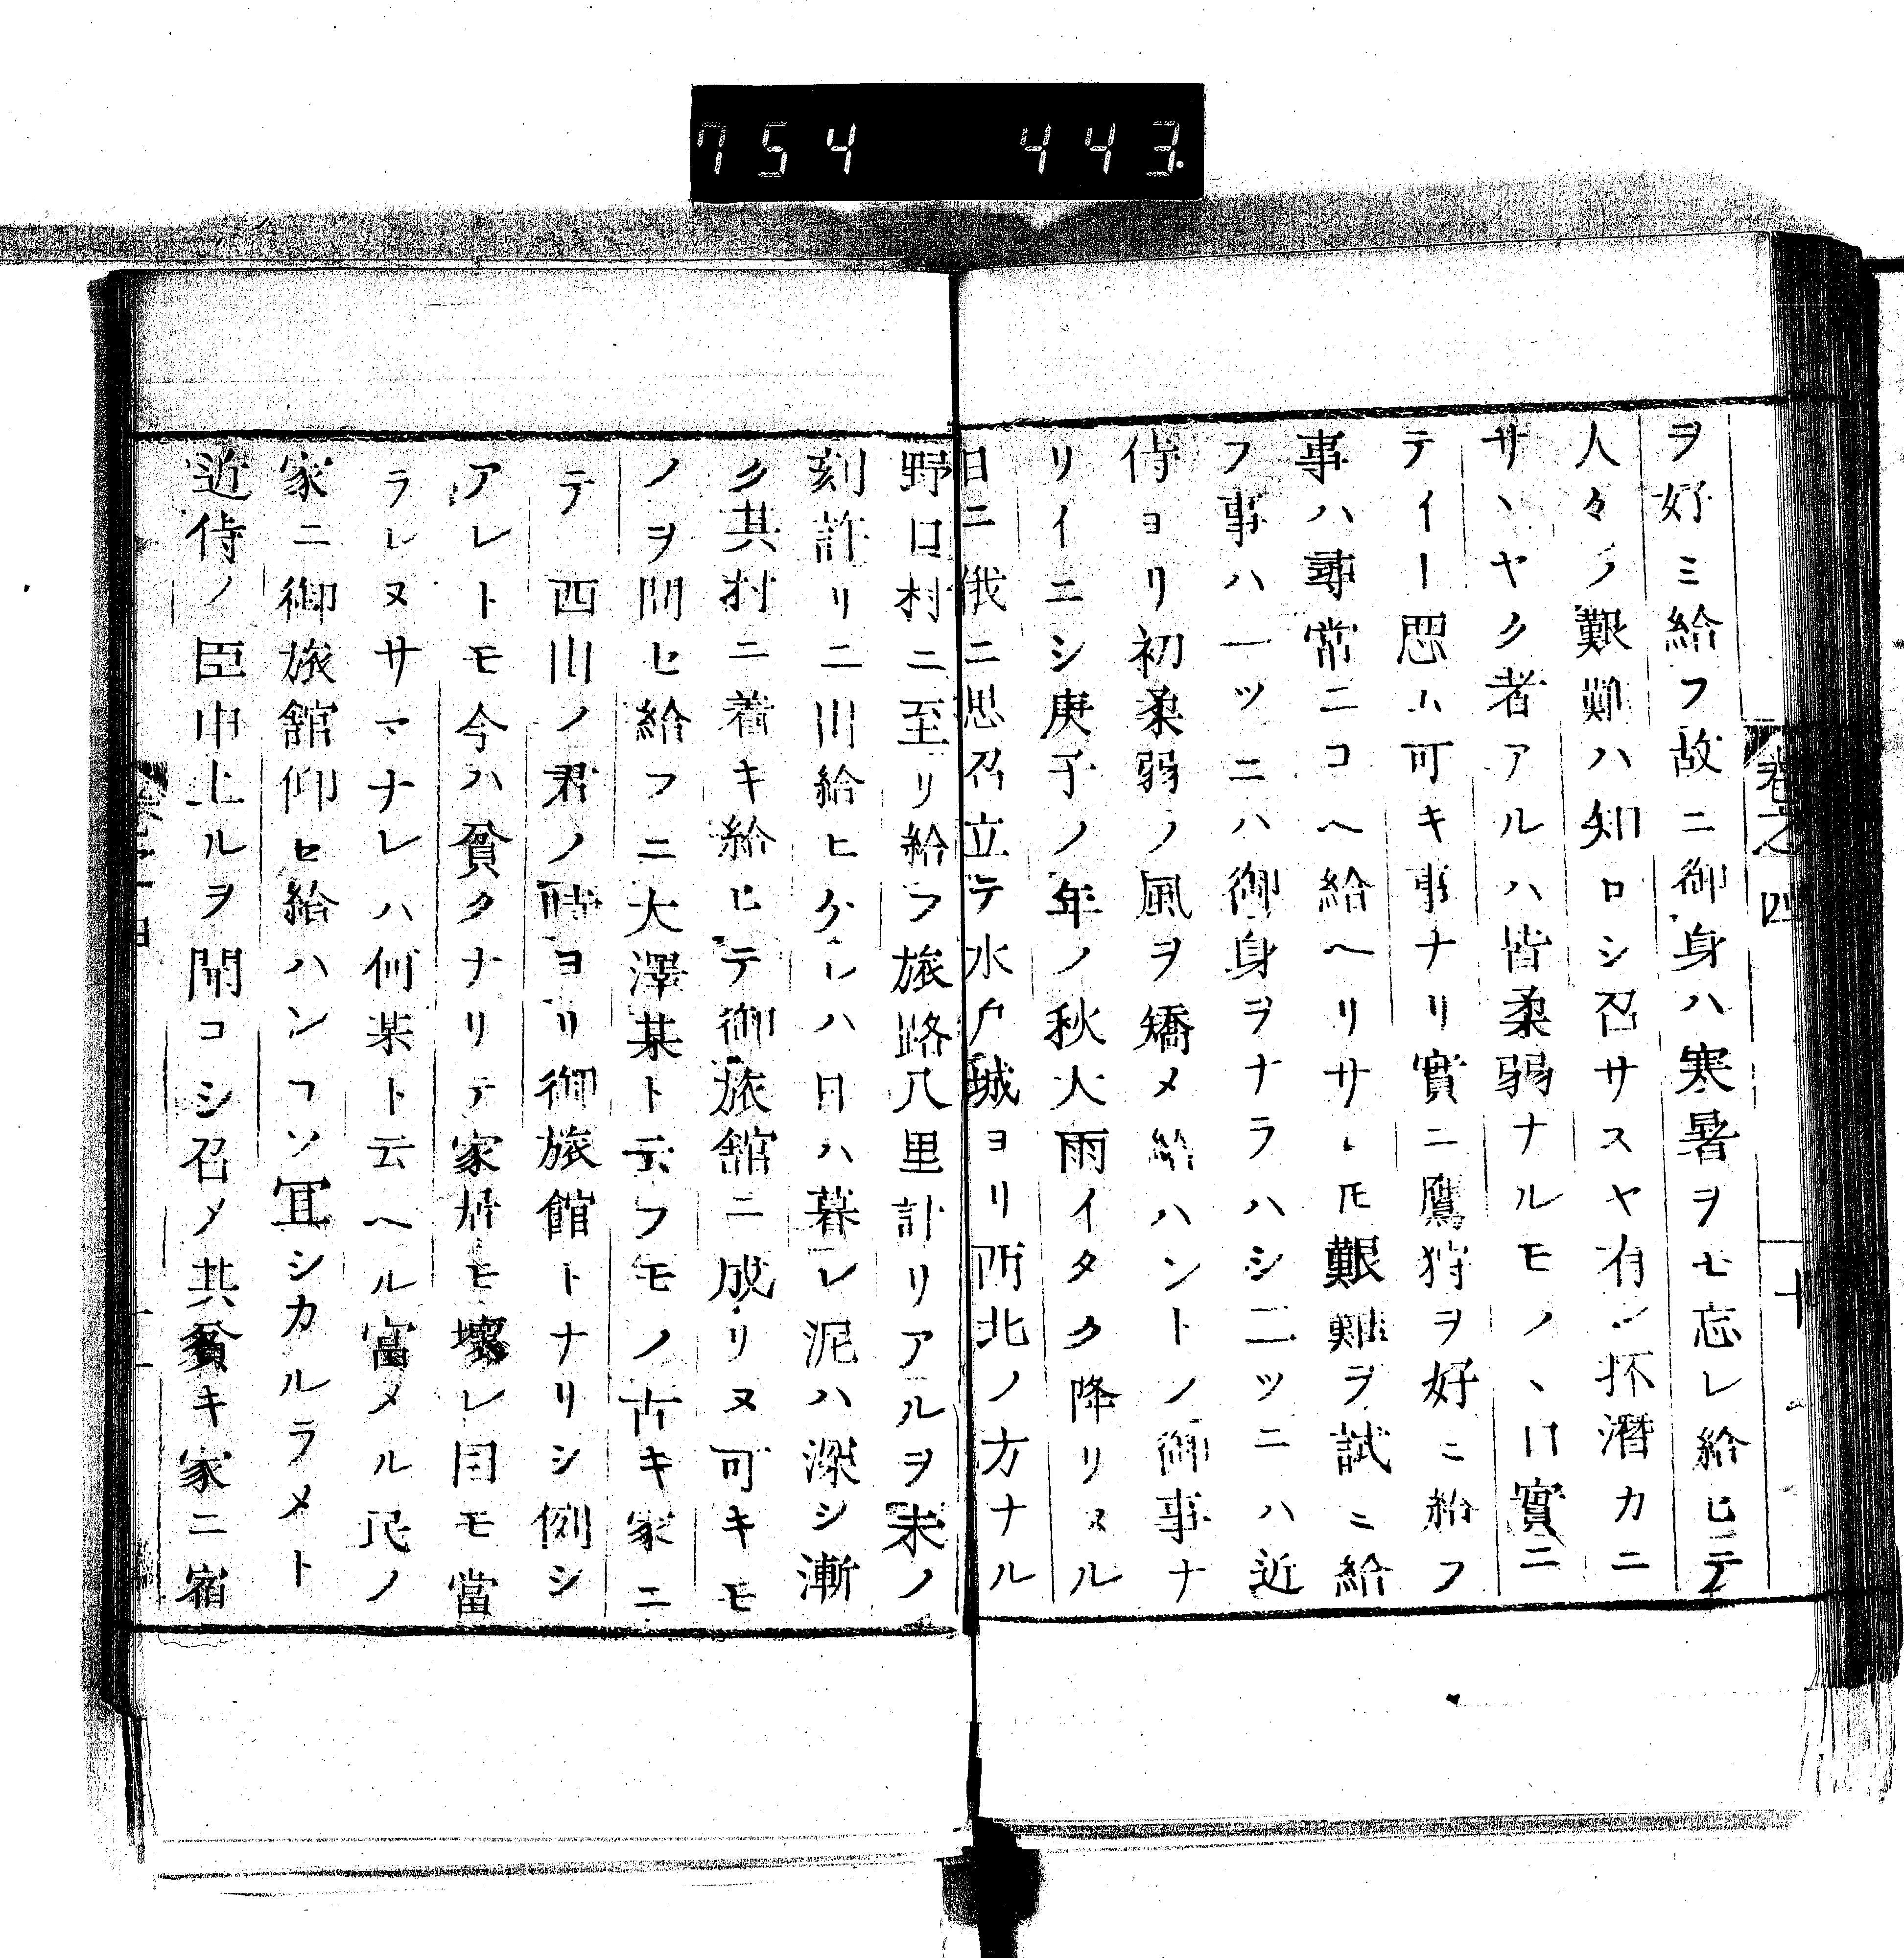 754 443.
卷之四
十
ヲ好ミ給フ故ニ御身ハ寒暑ヲモ忘レ給ヒテ
人々ノ艱難ハ知ロシ召サスヤ有ン抔潛カニ
サヽヤク者アルハ皆柔弱ナルモノヽ口實ニ
テイー思ハ可キ事ナリ實ニ鷹狩ヲ好ミ給フ
事ハ尋常ニコヘ給ヘリサレ𪜈艱難ヲ試ミ給
フ事ハ一ツニハ御身ヲナラハシ二ツニハ近
侍ヨリ初柔弱ノ風ヲ矯メ給ハントノ御事ナ
リイニシ庚子ノ年ノ秋大雨イタク降リヌル
日ニ俄ニ思召立テ水戸城ヨリ西北ノ方ナル
野口村ニ至リ給フ旅路八里計リアルヲ未ノ
刻許リニ出給ヒケレハ日ハ暮レ泥ハ深シ漸
ク其村ニ着キ給ヒテ御旅舘ニ成リヌ可キモ
ノヲ問セ給フニ大澤某ト云フモノノ古キ家ニ
テ 西山ノ君ノ時ヨリ御旅館トナリシ例シ
アレトモ今ハ貧クナリテ家居モ壞レ目モ當
ラレヌサマナレハ何某ト云ヘル富メル民ノ
家ニ御旅舘仰セ給ハンコソ宜シカルラメト
近侍ノ臣申上ルヲ聞コシ召メ其貧キ家ニ宿